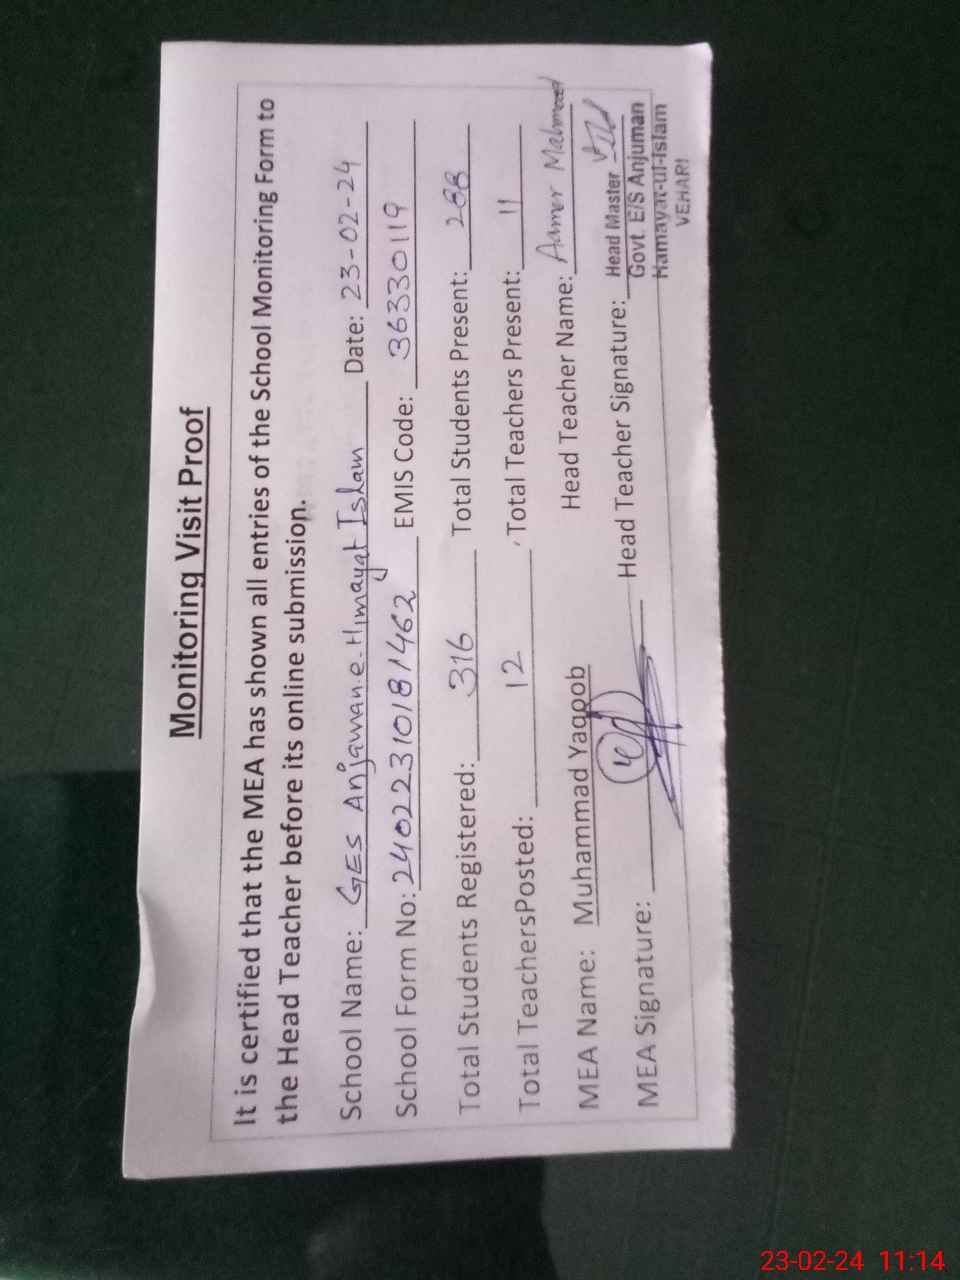 Monitoring Visit Proof
It is certified that the MEA has shown all entries of the School Monitoring Form to
the Head Teacher before its online submission.
School Name: GES Anjaman.e.Himayat Islam Date: 23-02-24
School Form No: 2402231018/462 EMIS Code: 36330119
Total Students Registered: 316 Total Students Present: 288
Total TeachersPosted: 12 Total Teachers Present: 11
MEA Name: Muhammad Yaqoob Head Teacher Name: Aamer Mahmood
MEA Signature: Head Teacher Signature:
Head Master
Govt. E/S Anjuman
Hamayat-ul-Islam
VEHARI
23-02-24 11:14